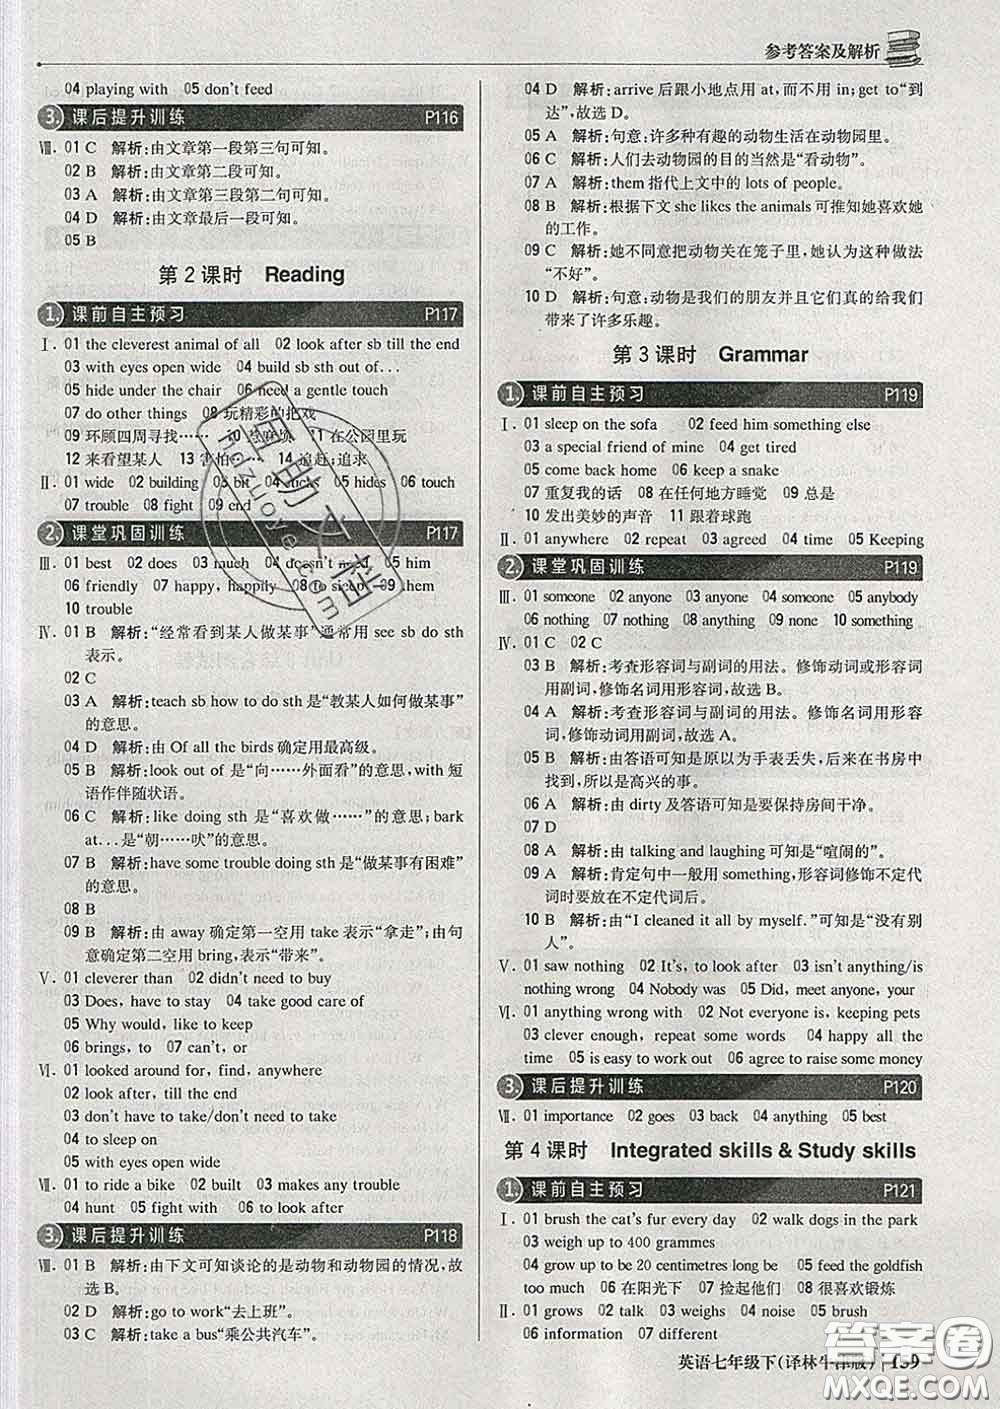 参考答案及解析
04 playing with　05 don't feed
3. 课后提升训练　P116
Ⅷ. 01 C　解析:由文章第一段第三句可知。
02 B　解析:由文章第二段可知。
03 A　解析:由文章第三段第二句可知。
04 D　解析:由文章最后一段可知。
05 B
第 2 课时　Reading
1. 课前自主预习　P117
Ⅰ. 01 the cleverest animal of all　02 look after sb till the end
03 with eyes open wide　04 build sb sth out of…
05 hide under the chair　06 need a gentle touch
07 do other things　08 玩精彩的把戏
09 环顾四周寻找……　10 惹麻烦　11 在公园里玩
12 来看望某人　13 害怕……　14 追赶;追求
Ⅱ. 01 wide　02 building　03 bit　04 sticks　05 hides　06 touch
07 trouble　08 fight　09 end
2. 课堂巩固训练　P117
Ⅲ. 01 best　02 does　03 much　04 doesn't need　05 him
06 friendly　07 happy, happily　08 to sleep　09 them
10 trouble
Ⅳ. 01 B　解析:“经常看到某人做某事”通常用 see sb do sth
表示。
02 C
03 A　解析:teach sb how to do sth 是“教某人如何做某事”
的意思。
04 D　解析:由 Of all the birds 确定用最高级。
05 B　解析:look out of 是“向……外面看”的意思,with 短
语作伴随状语。
06 C　解析:like doing sth 是“喜欢做……”的意思;bark
at…是“朝……吠”的意思。
07 B　解析:have some trouble doing sth 是“做某事有困难”
的意思。
08 B
09 B　解析:由 away 确定第一空用 take 表示“拿走”;由句
意确定第二空用 bring,表示“带来”。
Ⅴ. 01 cleverer than　02 didn't need to buy
03 Does, have to stay　04 take good care of
05 Why would, like to keep
06 brings, to　07 can't, or
Ⅵ. 01 looked around for, find, anywhere
02 look after, till the end
03 don't have to take/don't need to take
04 to sleep on
05 with eyes open wide
Ⅶ. 01 to ride a bike　02 built　03 makes any trouble
04 hunt　05 fight with　06 to look after
3. 课后提升训练　P118
Ⅷ. 01 B　解析:由下文可知谈论的是动物和动物园的情况,故
选 B。
02 D　解析:go to work“去上班”。
03 C　解析:take a bus“乘公共汽车”。
04 D　解析:arrive 后跟小地点用 at,而不用 in;get to“到
达”,故选 D。
05 A　解析:句意:许多种有趣的动物生活在动物园里。
06 C　解析:人们去动物园的目的当然是“看动物”。
07 A　解析:them 指代上文中的 lots of people。
08 B　解析:根据下文 she likes the animals 可推知她喜欢她
的工作。
09 C　解析:她不同意把动物关在笼子里,她认为这种做法
“不好”。
10 D　解析:句意:动物是我们的朋友并且它们真的给我们
带来了许多乐趣。
第 3 课时　Grammar
1. 课前自主预习　P119
Ⅰ. 01 sleep on the sofa　02 feed him something else
03 a special friend of mine　04 get tired
05 come back home　06 keep a snake
07 重复我的话　08 在任何地方睡觉　09 总是
10 发出美妙的声音　11 跟着球跑
Ⅱ. 01 anywhere　02 repeat　03 agreed　04 time　05 Keeping
2. 课堂巩固训练　P119
Ⅲ. 01 someone　02 anyone　03 anyone　04 someone　05 anybody
06 nothing　07 nothing　08 anything　09 none　10 something
Ⅳ. 01 C　02 C
03 B　解析:考查形容词与副词的用法。修饰动词或形容词
用副词,修饰名词用形容词,故选 B。
04 A　解析:考查形容词与副词的用法。修饰名词用形容
词,修饰动词用副词,故选 A。
05 B　解析:由答语可知是原以为手表丢失,后来在书房中
找到,所以是高兴的事。
06 A　解析:由 dirty 及答语可知是要保持房间干净。
07 D
08 A　解析:由 talking and laughing 可知是“喧闹的”。
09 A　解析:肯定句中一般用 something,形容词修饰不定代
词时要放在不定代词后。
10 B　解析:由“I cleaned it all by myself.”可知是“没有别
人”。
Ⅴ. 01 saw nothing　02 It's, to look after　03 isn't anything/is
nothing wrong　04 Nobody was　05 Did, meet anyone, your
Ⅵ. 01 anything wrong with　02 Not everyone is, keeping pets
03 clever enough, repeat some words　04 happy all the
time　05 is easy to work out　06 agree to raise some money
3. 课后提升训练　P120
Ⅶ. 01 importance　02 goes　03 back　04 anything　05 best
第 4 课时　Integrated skills & Study skills
1. 课前自主预习　P121
Ⅰ. 01 brush the cat's fur every day　02 walk dogs in the park
03 weigh up to 400 grammes
04 grow up to be 20 centimetres long　05 feed the goldfish
too much　06 在阳光下　07 捡起他们　08 很喜欢锻炼
Ⅱ. 01 grows　02 talk　03 weighs　04 noise　05 brush
06 information　07 different
英语七年级下(译林牛津版)　159
答案圈
MXQE.COM